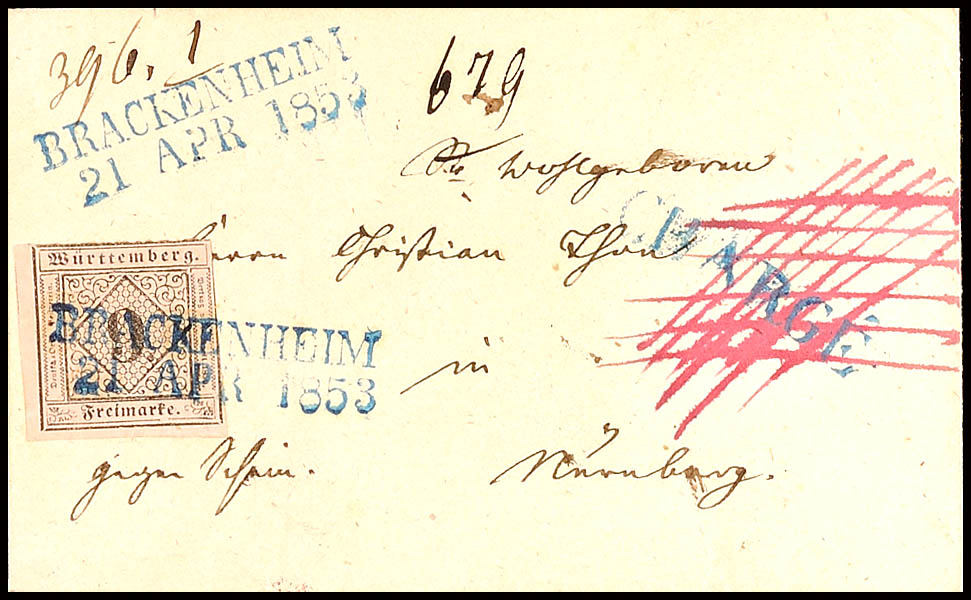 396. 1
BRACKENHEIM
21 APR 1853
679
Sr. Wohlgeboren
Herrn Christian Thon
CHARGÉ
Württemberg.
9
Freimarke.
BRACKENHEIM
21 APR 1853
in
gegen Schein.
Nürnberg.